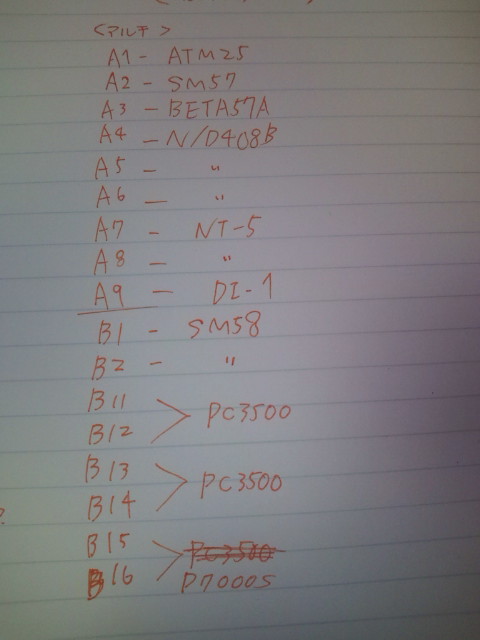 <マルチ>
A1 - ATM25
A2 - SM57
A3 - BETA57A
A4 - N/D408B
A5 - 〃
A6 - 〃
A7 - NT-5
A8 - 〃
A9 - DI-1
B1 - SM58
B2 - 〃
B11
B12 > PC3500
B13
B14 > PC3500
B15
B16 > PC3500
P7000S